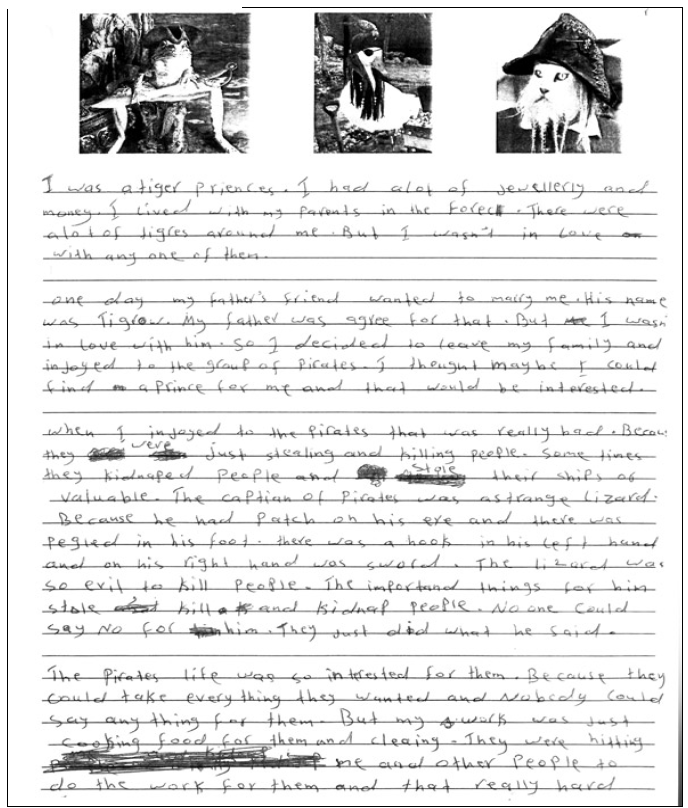 I was a tiger priences. I had alot of jewellerly and
money. I lived with my parents in the forect. There were
alot of tigres around me. But I wasn't in Love
with any one of them.
one day my father's friend wanted to marry me. His name
was Tigrow. My father was agree for that. But I wasn
in Love with him. So I decided to leave my family and
injoyed to the group of Pirates. I thought maybe I could
find a Prince for me and that would be interested.
When I injoyed to the Pirates that was really bad. Becau
they were just stealing and killing people. Some times
they kidnaped People and stole their ships of
valuable. The caption of Pirates was a strange Lizard.
Because he had Patch on his eye and there was
Pegled in his foot. there was a hook in his left hand
and on his right hand was sword. The lizard was
so evil to kill People. The importand things for him
stole kill and kidnap people. No one could
say No for him. They just did what he said.
The Pirates life was so interested for them. Because they
could take everything they wanted and Nobody could
say any thing for them. But my work was just
cooking food for them and cleaing. They were hitting
me and other People to
do the work for them and that really hard